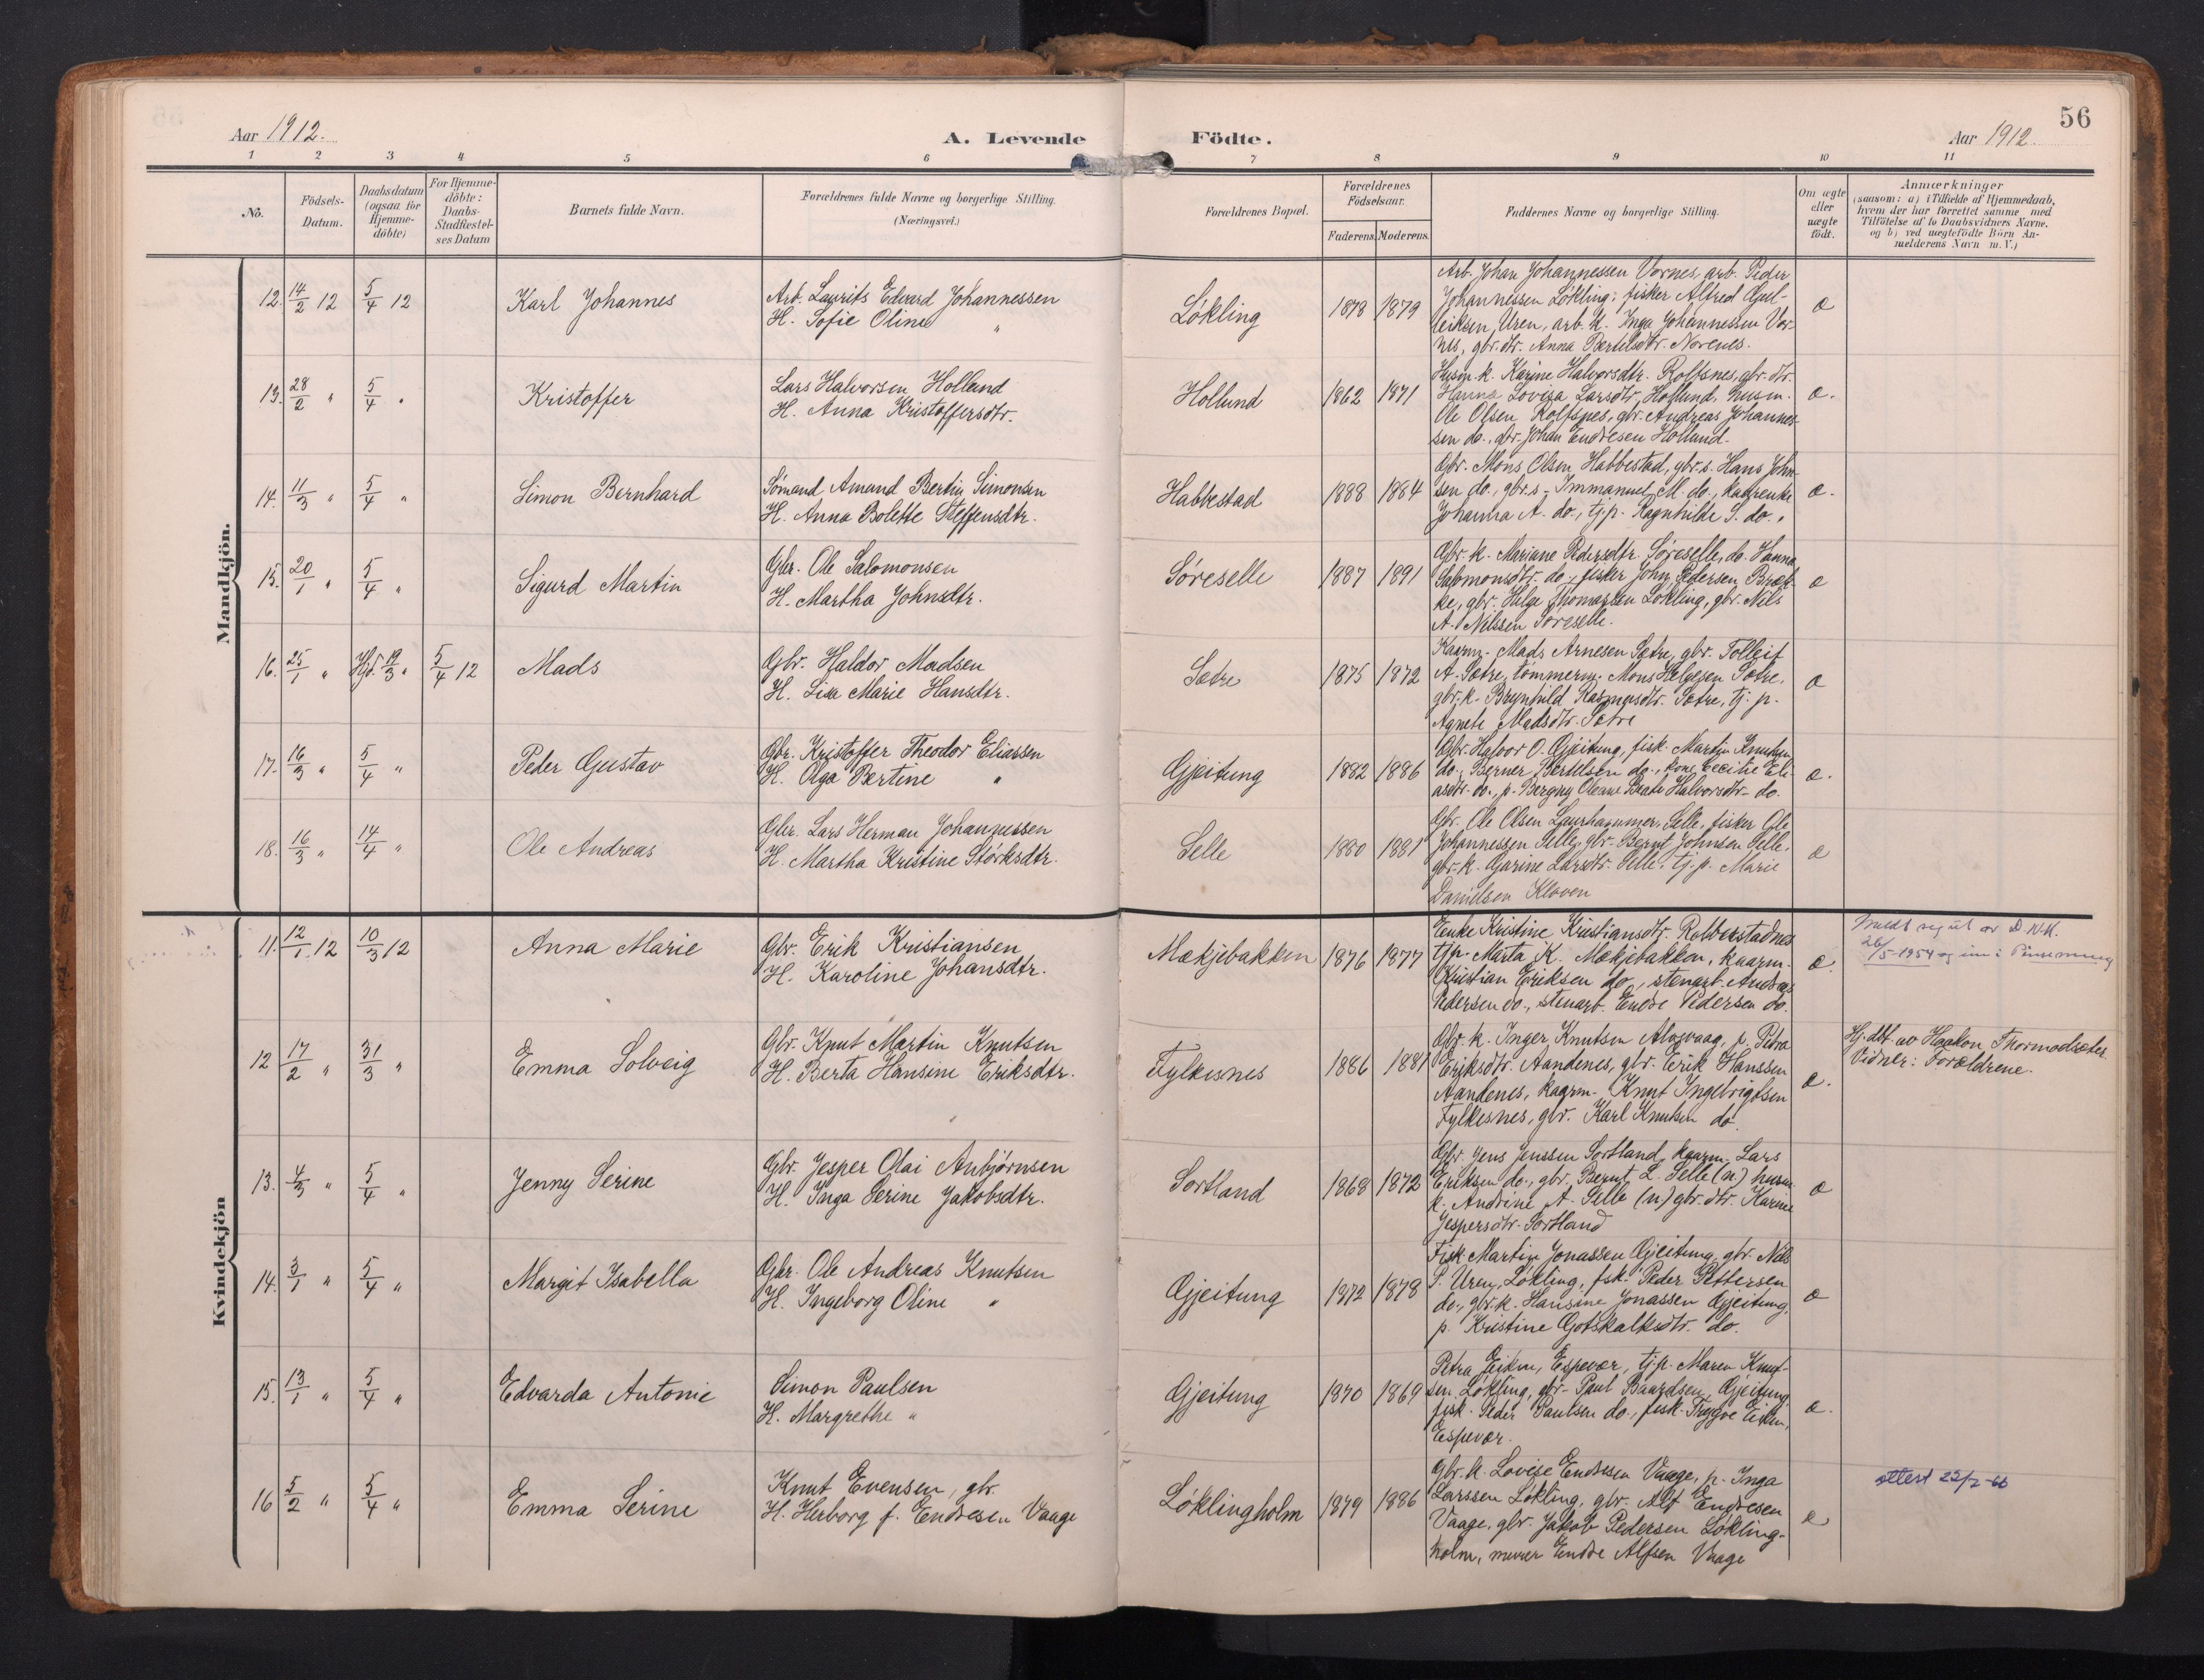 56
Aar 1912.
A. Levende
Födte.
Aar 1912.
1 2 3 4 5 6 7 8 9 10 11
No.
Födsels-
Datum.
Daabsdatum
(ogsaa for
Hjemme-
döbte)
For Hjemme-
döbte:
Daabs-
Stadfæstel-
ses Datum
Barnets fulde Navn.
Forældrenes fulde Navne og borgerlige Stilling.
(Næringsvei.)
Forældrenes Bopæl.
Forældrenes
Födselsaar.
Faderens. Moderens.
Faddernes Navne og borgerlige Stilling.
Om ægte
eller
uægte
födt.
Anmærkninger
(saasom: a) i Tilfælde af Hjemmedaab,
hvem der har forrettet samme med
Tilföielse af to Daabsvidners Navne,
og b) ved uægtefödte Börn An-
melderens Navn m. V.)
Mandkjön.
12. 14/2 12 5/4 12 Karl Johannes
Arb. Laurits Edvard Johannessen
H. Sofie Oline "
Løkling 1878 1879
Arb. Johan Johannessen Vornes, arb. Peder
Johannessen Løkling; fisker Alfred Gul-
leiksen, Uren, arb. k. Inga Johannessen Vor-
nes, gbr. dtr. Anna Bertelsdtr. Norenes.
æ
13. 28/2 " 5/4 " Kristoffer
Lars Halvorsen Holland
H. Anna Kristoffersdtr.
Hollund 1862 1871
Husm. k. Karine Halvorsdtr. Rolfsnes, gbr. dtr.
Hanna Lovisa Larsdtr. Hollund, husm.
Ole Olsen Rolfsnes, gbr. Andreas Johannes-
sen do., gbr. Johan Endresen Hollund.
æ.
14. 11/3 " 5/4 " Simon Bernhard
Sømand Amund Bertin Simonsen
H. Anna Bolette Steffensdtr.
Habbestad 1888 1884
Gbr. Mons Olsen Habbestad, gbr. s. Hans John-
sen do., gbr. s. Immanuel M. do., kaarenke
Johanna A. do., tj. p. Ragnhilde S. do.
æ.
15. 20/1 " 5/4 " Sigurd Martin
Gbr. Ole Salomonsen
H. Martha Johnsdtr.
Søreselle 1887 1891
Gbr. k. Mariane Pedersdtr. Søreselle, do. Hanna
Salomonsdtr. do., fisker John Pedersen Bræk-
ke, gbr. Helge Thomassen Løkling, gbr. Nils
A. Nilssen Søreselle.
æ
16. 25/1 " Hjd. 19/3 " 5/4 12 Mads
Gbr. Haldor Madsen
H. Lisa Marie Hansdtr.
Sætre 1875 1872
Kaarm. Mads Arnesen Sætre, gbr. Tolleif
A. Sætre, tømmerm. Mons Helgesen Sætre,
gbr. k. Brynhild Rasmusdtr. Sætre, tj. p.
Agnete Madsdtr. Sætre
æ
17. 16/3 " 5/4 " Peder Gustav
Gbr. Kristoffer Theodor Eliassen
H. Olga Bertine "
Gjeitung 1882 1886
Gbr. Halvor O. Gjeitung, fisk. Martin Knutsen
do., Berner Bertelsen do., kone Cecilie Eli-
asdtr. do., p. Bergny Oleane Beate Halvorsdtr. do.
æ.
18. 16/3 " 14/4 " Ole Andreas
Gbr. Lars Herman Johannessen
H. Martha Kristine Størksdtr.
Selle 1880 1881
Gbr. Ole Olsen Laurhammer, Selle, fisker Ole
Johannessen Selle, gbr. Bernt Johnsen Selle,
gbr. k. Gjarine Larsdtr. Selle, tj. p. Marie
Danielsen Kloven
æ
Kvindekjön
11. 12/1 12 10/3 12 Anna Marie
Gbr. Erik Kristiansen
H. Karoline Johansdtr.
Mækjebakken 1876 1877
Enke Kristine Kristiansdtr. Rolberstadnes
tjp. Marta K. Mækjebakken, kaarm.
Kristian Eriksen do., stenarb. Andreas
Pedersen do., stenarb. Endre Pedersen do.
æ.
Meldt seg ut av D.N.K.
26/5-1954 og inn i Pinsemenig
12 17/2 " 31/3 " Emma Solveig
Gbr. Knut Martin Knutsen
H. Berta Hansine Eriksdtr.
Fylkesnes 1886 1881
Gbr. k. Inger Knutsen Alvsvaag, p. Petra
Eriksdtr. Aandenes, gbr. Erik Hanssen
Aandenes, kaarm. Knut Ingebrigtsen
Fylkesnes, gbr. Karl Knutsen do.
æ.
Hj. dbt. av Haakon Thormodsæter
Vidner: Forældrene.
13. 4/3 " 5/4 " Jenny Serine
Gbr. Jesper Olai Anbjørnsen
H. Inga Serine Jakobsdtr.
Sortland 1868 1872
Gbr. Jens Jenssen Sortland, kaarm. Lars
Eriksen do., gbr. Bernt L. Selle (n) husm.
k. Andrine A. Selle (n) gbr. dtr. Karine
Jespersdtr. Sortland
æ
14. 3/1 " 5/4 " Margit Isabella
Gbr. Ole Andreas Knutsen
H. Ingeborg Oline "
Gjeitung 1872 1878
Fisk. Martin Jonassen Gjeitung, gbr. Nils
P. Uren, Løkling, fsk. Peder Pettersen
do., gbr. k. Hansine Jonassen Gjeitung,
p. Kristine Gotskalksdtr. do.
æ
15. 13/1 " 5/4 " Edvarda Antonie
Simon Paulsen
H. Margrethe "
Gjeitung 1870 1869
Petra Eiken, Espevær, tj. p. Maren Knut-
sen Løkling, gbr. Paul Baardsen, Gjeitung
fisk. Peder Paulsen do., fisk. Trygve Eiken,
Espevær.
æ.
16 5/2 " 5/4 " Emma Serine
Knut Evensen, gbr.
H. Herborg f. Endresen Vaage
Løklingholm 1879 1886
Gbr. k. Lovise Endresen Vaage, p. Inga
Larssen Løkling, gbr. Alf Endresen
Vaage, gbr. Jakob Pedersen Løkling-
holm, murer Endre Alfsen Vaage
æ
attest 22/2-66